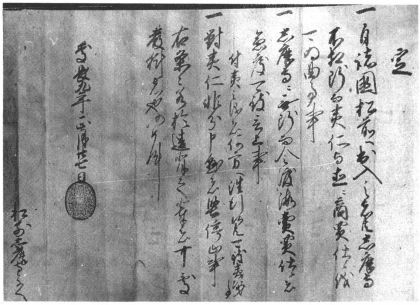 定
一自諸国松前へ出入之者共志摩守
不相断而夷仁与直ニ商買仕候儀
可為曲事事
一志摩守ニ無断而令渡海売買仕候者
急度可致言上事
付夷之儀者何方へ往行候共可致夷次第事
一対夷仁非分申懸者堅停止事
右条々若於違背之輩者可処
厳科者也仍如件
慶長九年正月廿七日
松前志摩とのへ